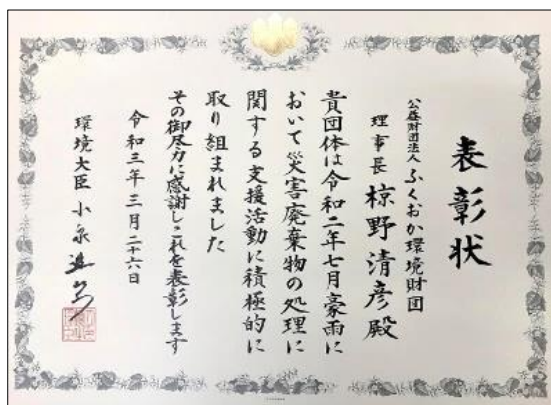 表彰状
公益財団法人ふくおか環境財団
理事長 椋野清彦殿
貴団体は令和二年七月豪雨に
おいて災害廃棄物の処理に
関する支援活動に積極的に
取り組まれました
その御尽力に感謝しこれを表彰します
令和三年三月二十六日
環境大臣 小泉進次郎